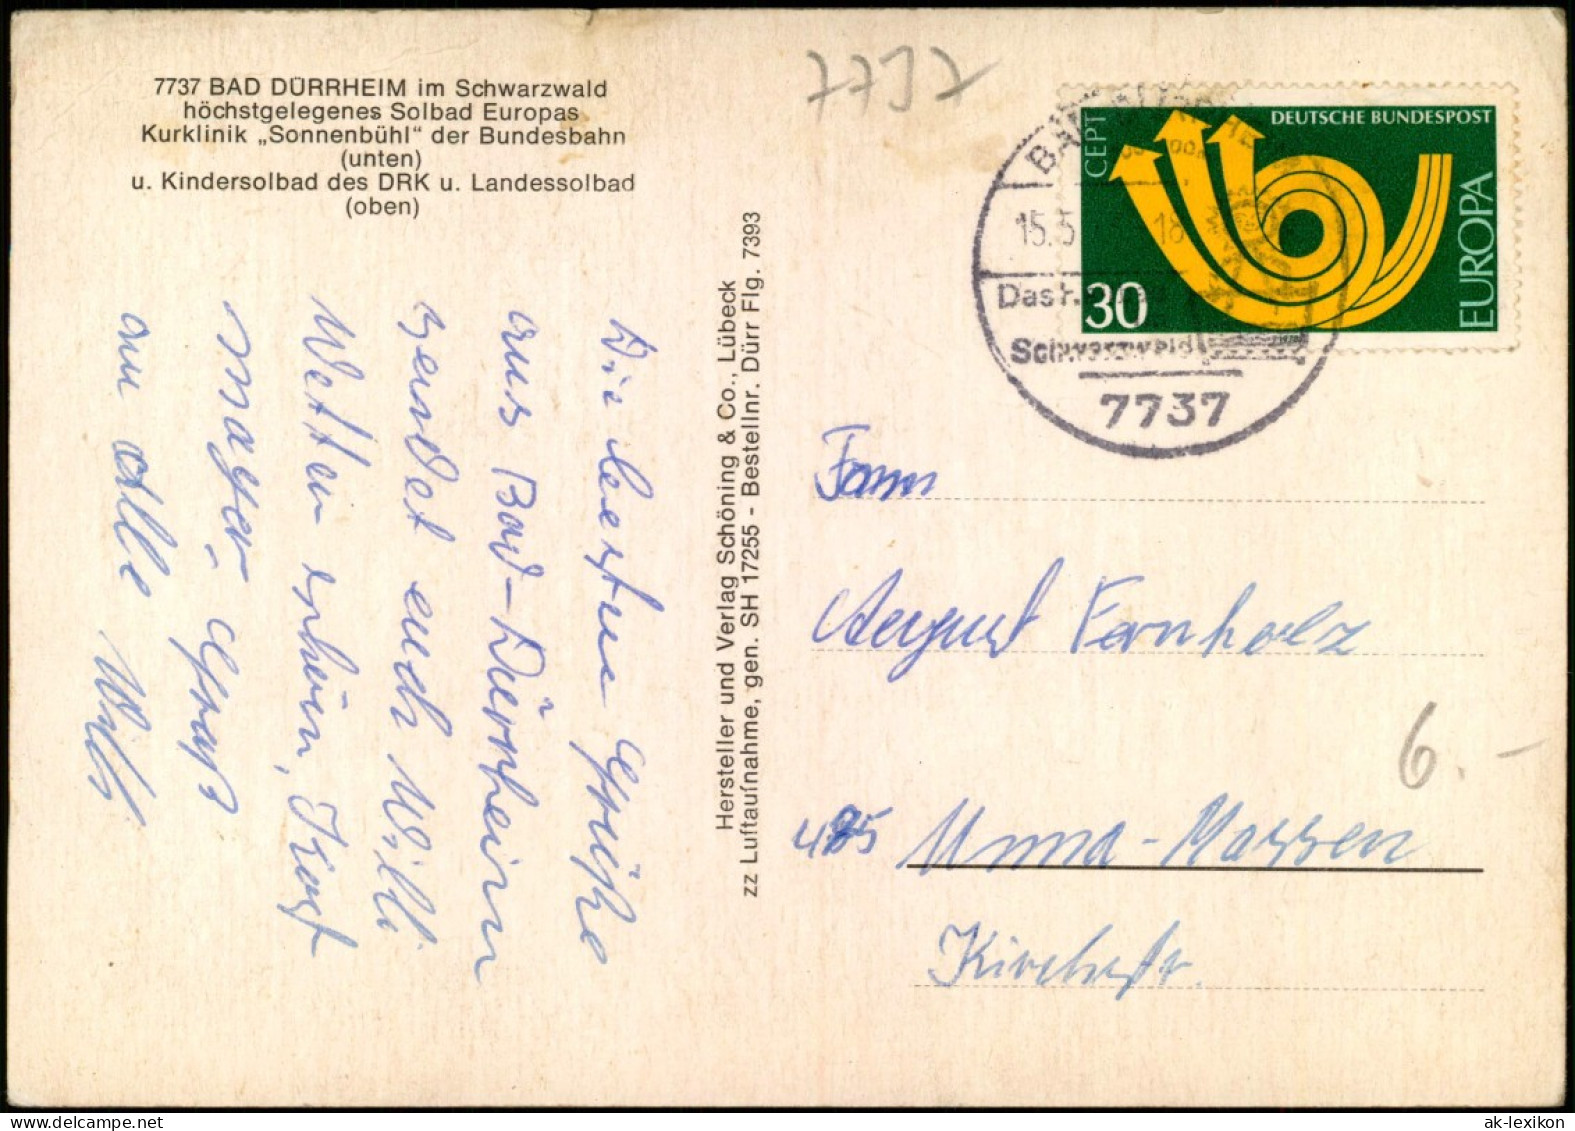 7737 BAD DÜRRHEIM im Schwarzwald
höchstgelegenes Solbad Europas
Kurklinik „Sonnenbühl" der Bundesbahn
(unten)
u. Kindersolbad des DRK u. Landessolbad
(oben)
7737
CEPT
DEUTSCHE BUNDESPOST
EUROPA
30
15.5
18
Schwarzwald
7737
Die besten Grüße
aus Bad-Dürrheim
sendet euch Willi
Wetter schön, Kost
mager, Gruß
an Alle Willi
Hersteller und Verlag Schöning & Co., Lübeck
zz Luftaufnahme, gen. SH 17255 - Bestellnr. Dürr Flg. 7393
Fam
August Fernholz
6.-
475 Unna-Massen
Kirchstr.
ak-lexikon